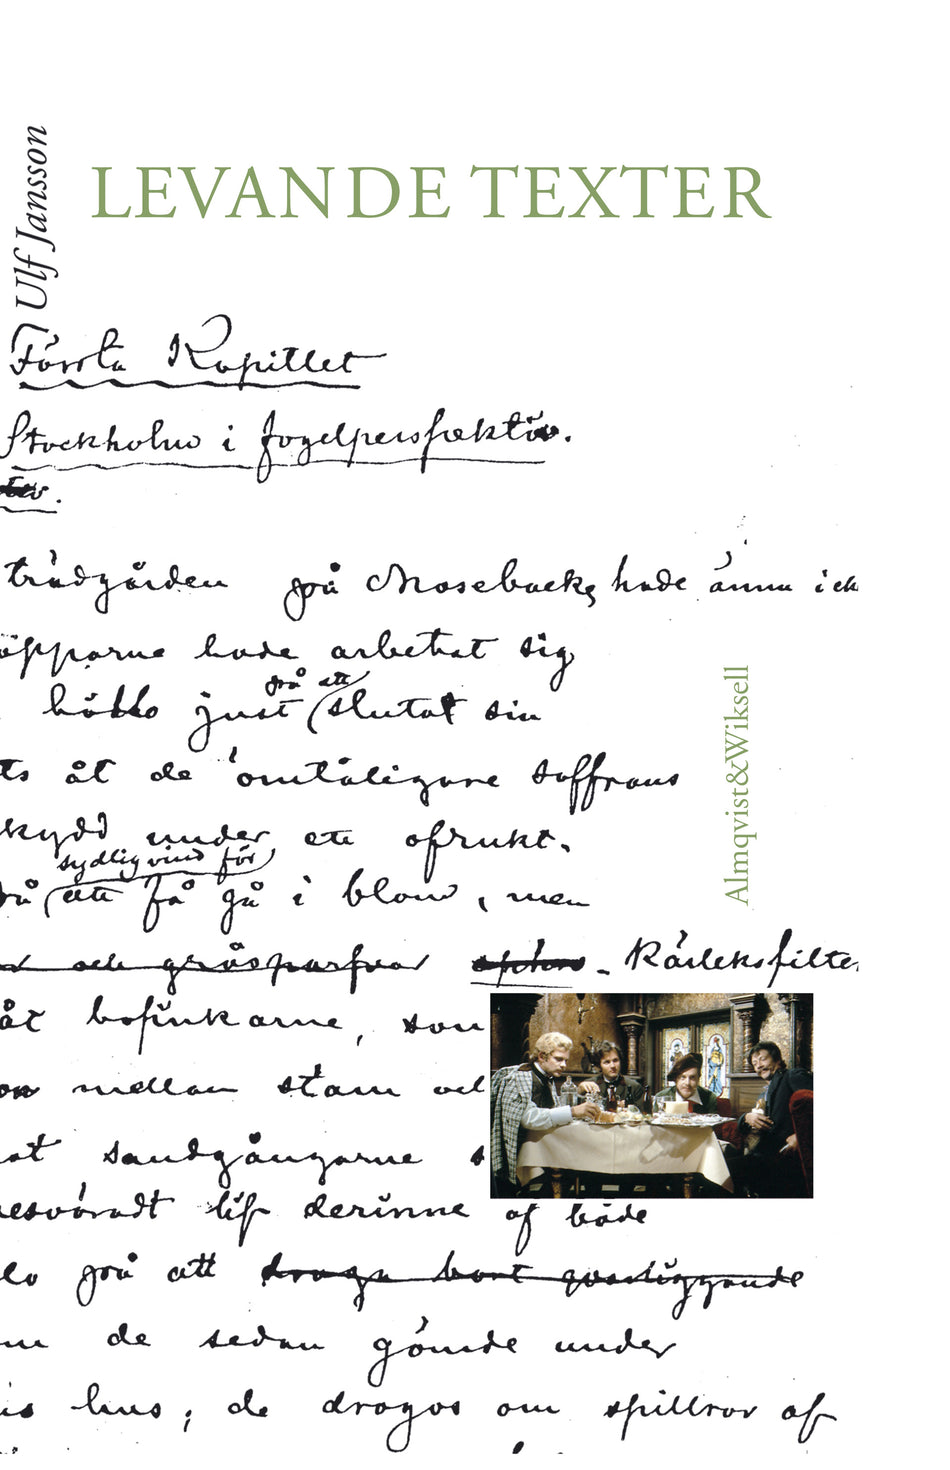 Ulf Jansson
LEVANDE TEXTER
Första Kapitlet
Stockholm i fogelperspektiv.
trädgården på Mosebacke hade ännu ick
öpparne hade arbetat sig
hållo just slutat sin
på att
ts åt de ömtåligare saffrans
kydd under ett ofrukt.
sydlig vind för
på att få gå i blom, men
och gråsparfvar - Kärleksfilte
åt bofinkarne, som
mellan stam och
at sandgångarne s
esväradt lif derinne af både
på att draga bort qvarliggande
de sedan gömde under
is hus; de drogos om spillror af
Almqvist&Wiksell